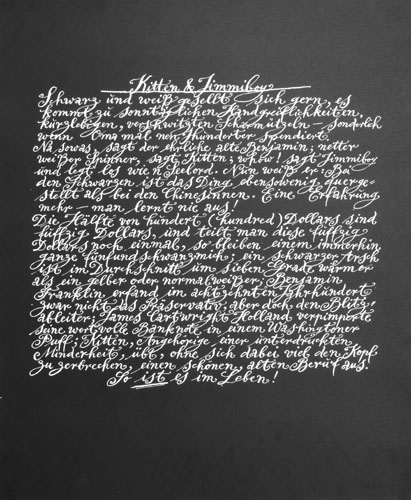 Kitten & Jimmiboy
Schwarz und weiß gesellt sich gern, es
kommt zu sonntäglichen Handgreiflichkeiten,
kurzlebigen, verschwitzten Scharmützeln – sonderlich
wenn Oma mal nen Hunderter spendiert.
Na sowas, sagt der ehrliche, alte Benjamin; netter
weißer Spinner, sagt Kitten; whow! sagt Jimmiboy
und legt los wie'n Seelord. Nun weiß er: Bei
den Schwarzen ist das Ding ebensowenig querge-
stellt als bei den Chinesinnen. Eine Erfahrung
mehr – man lernt nie aus!
Die Hälfte von hundert (hundred) Dollars sind
fuffzig Dollars, und teilt man diese fuffzig
Dollars noch einmal, so bleiben einem immerhin
ganze fünfundschwanzmich; ein schwarzer Arsch
ist im Durchschnitt um sieben Grade wärmer
als ein gelber oder normal weißer; Benjamin
Franklin erfand im achtzehnten Jahrhundert
zwar nicht das Präservativ, aber doch den Blitz-
ableiter; James Cartwright Holland verpimperte
seine wertvolle Banknote in einem Washingtoner
Puff; Kitten, Angehörige einer unterdrückten
Minderheit, übt, ohne sich dabei viel den Kopf
zu zerbrechen, einen schönen, alten Beruf aus.
So ist es im Leben!